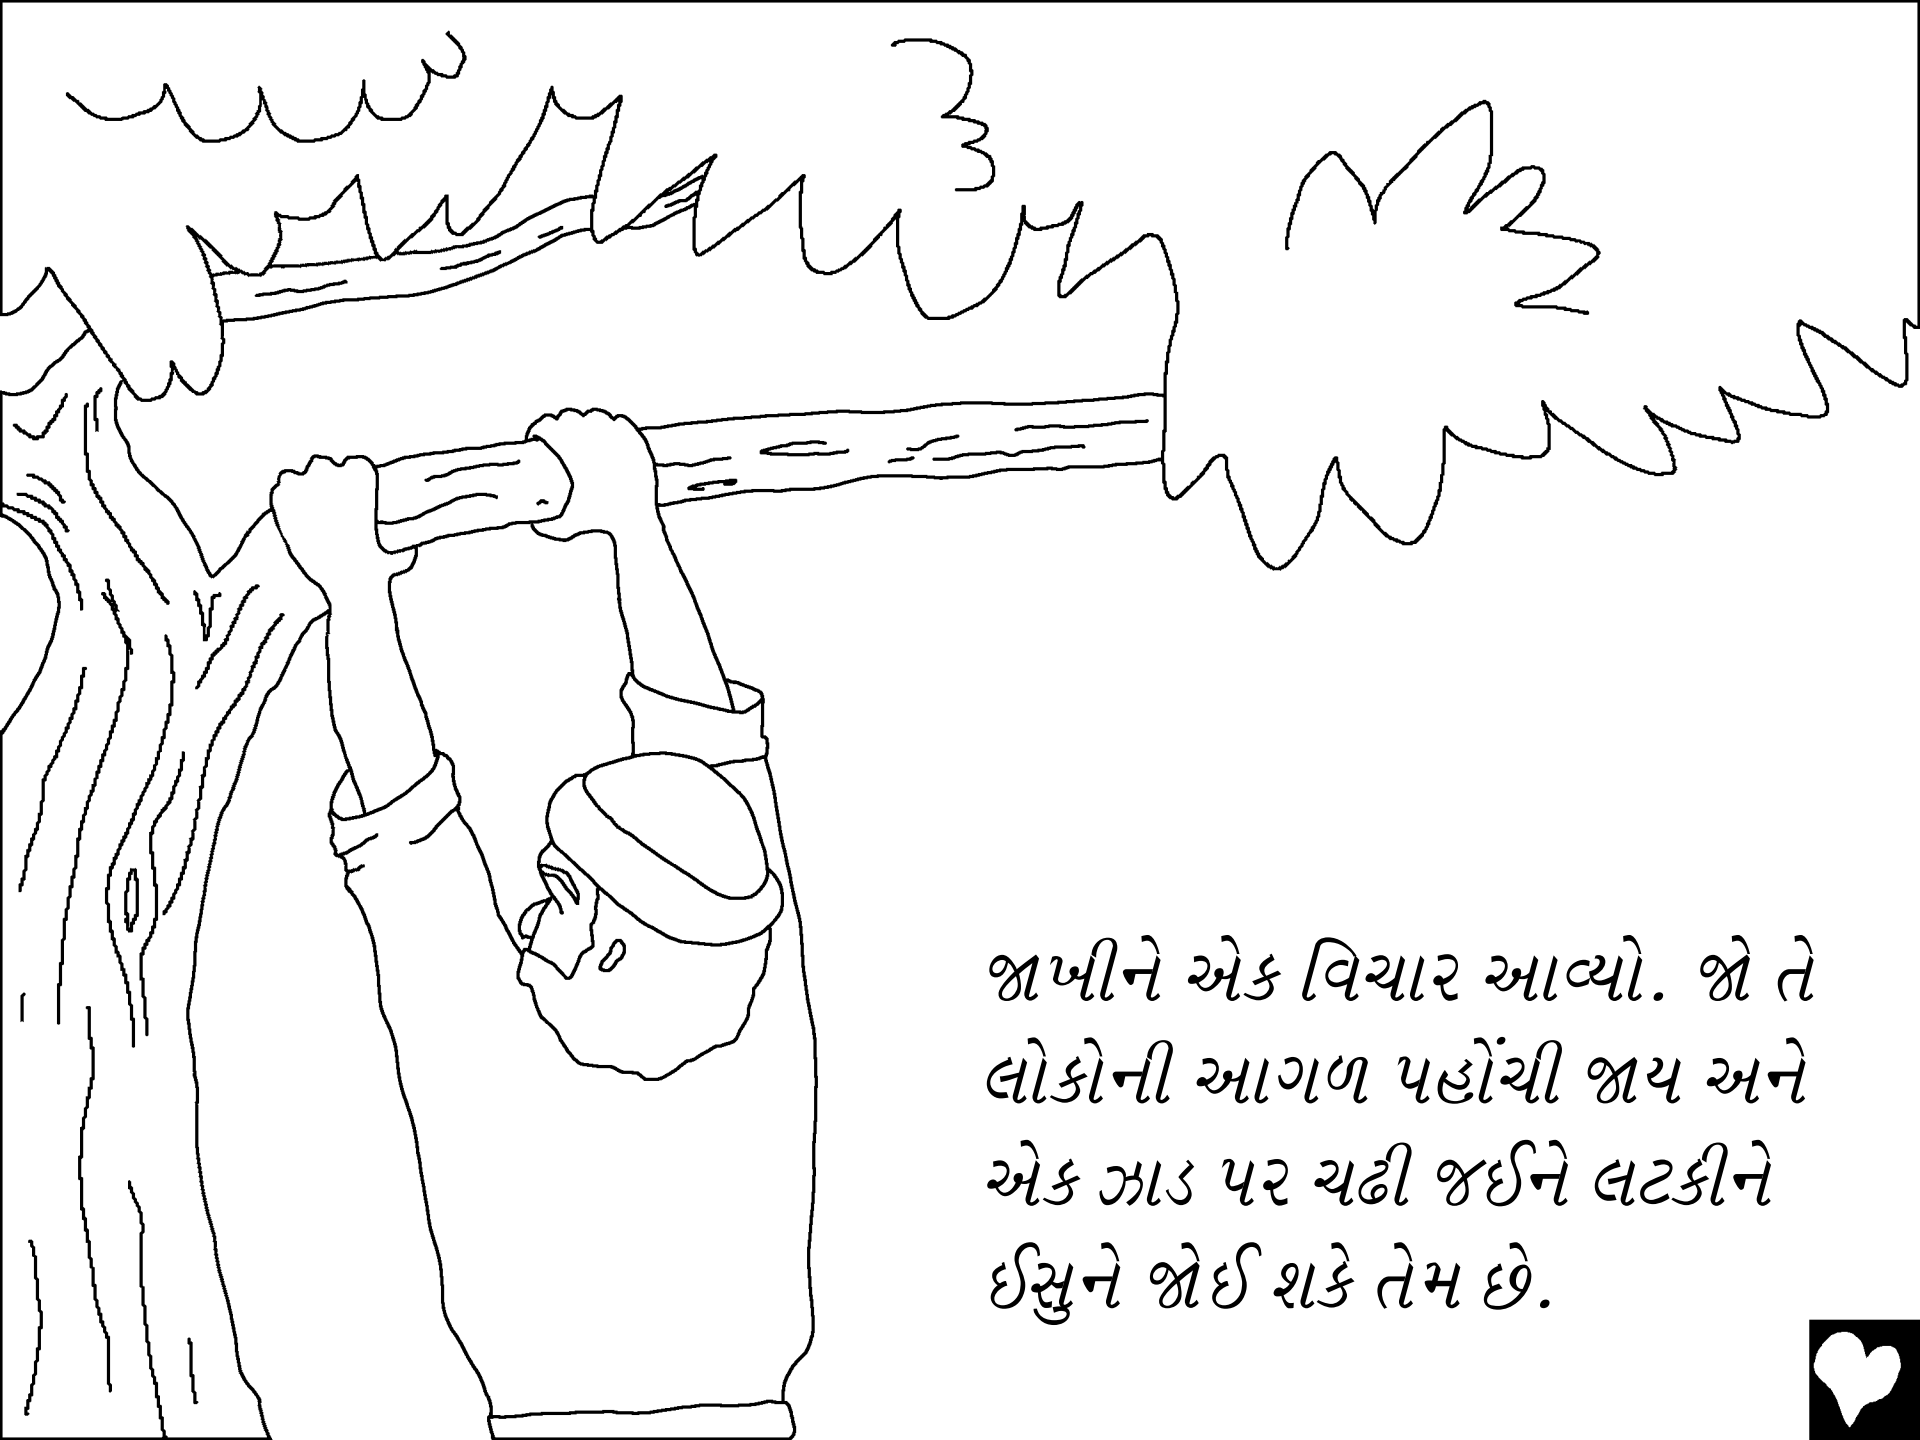 જાખીને એક વિચાર આવ્યો. જો તે
લોકોની આગળ પહોંચી જાય અને
એક ઝાડ પર ચઢી જઈને લટકીને
ઈસુને જોઈ શકે તેમ છે.